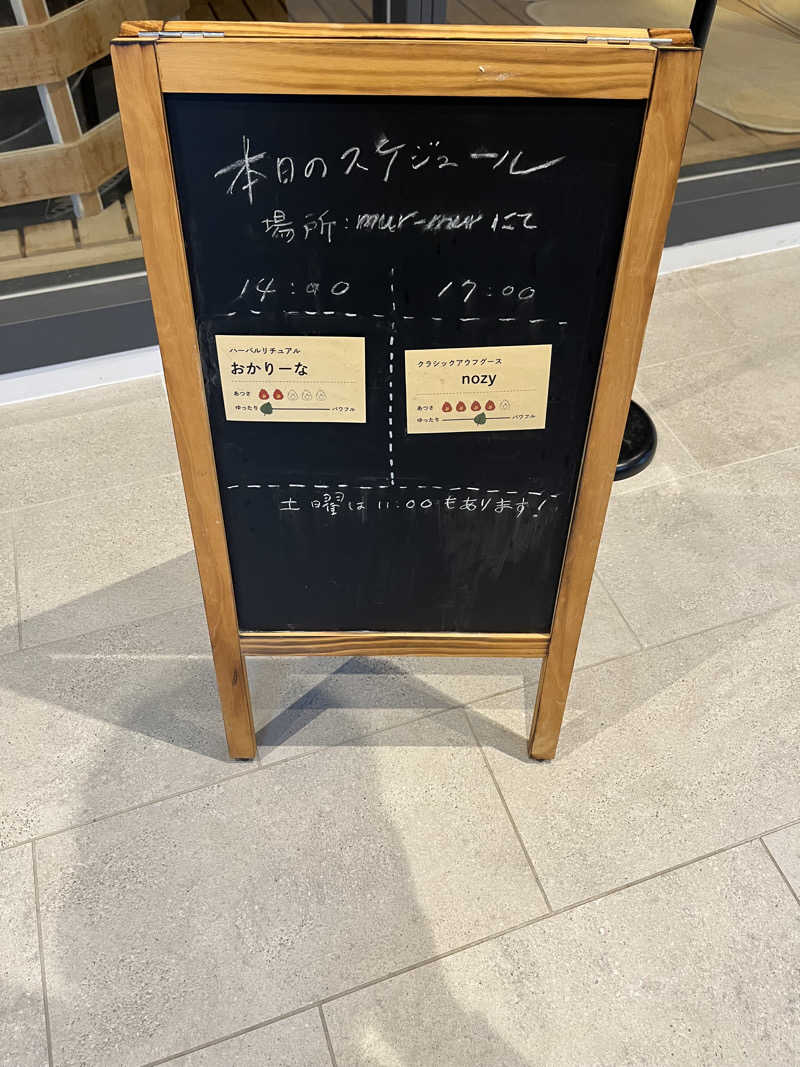 本日のスケジュール
場所:mur-murにて
14:00
17:00
ハーバルリチュアル
おかりーな
あつさ
ゆったり パワフル
クラシックアウフグース
nozy
あつさ
ゆったり パワフル
土曜は11:00もあります!